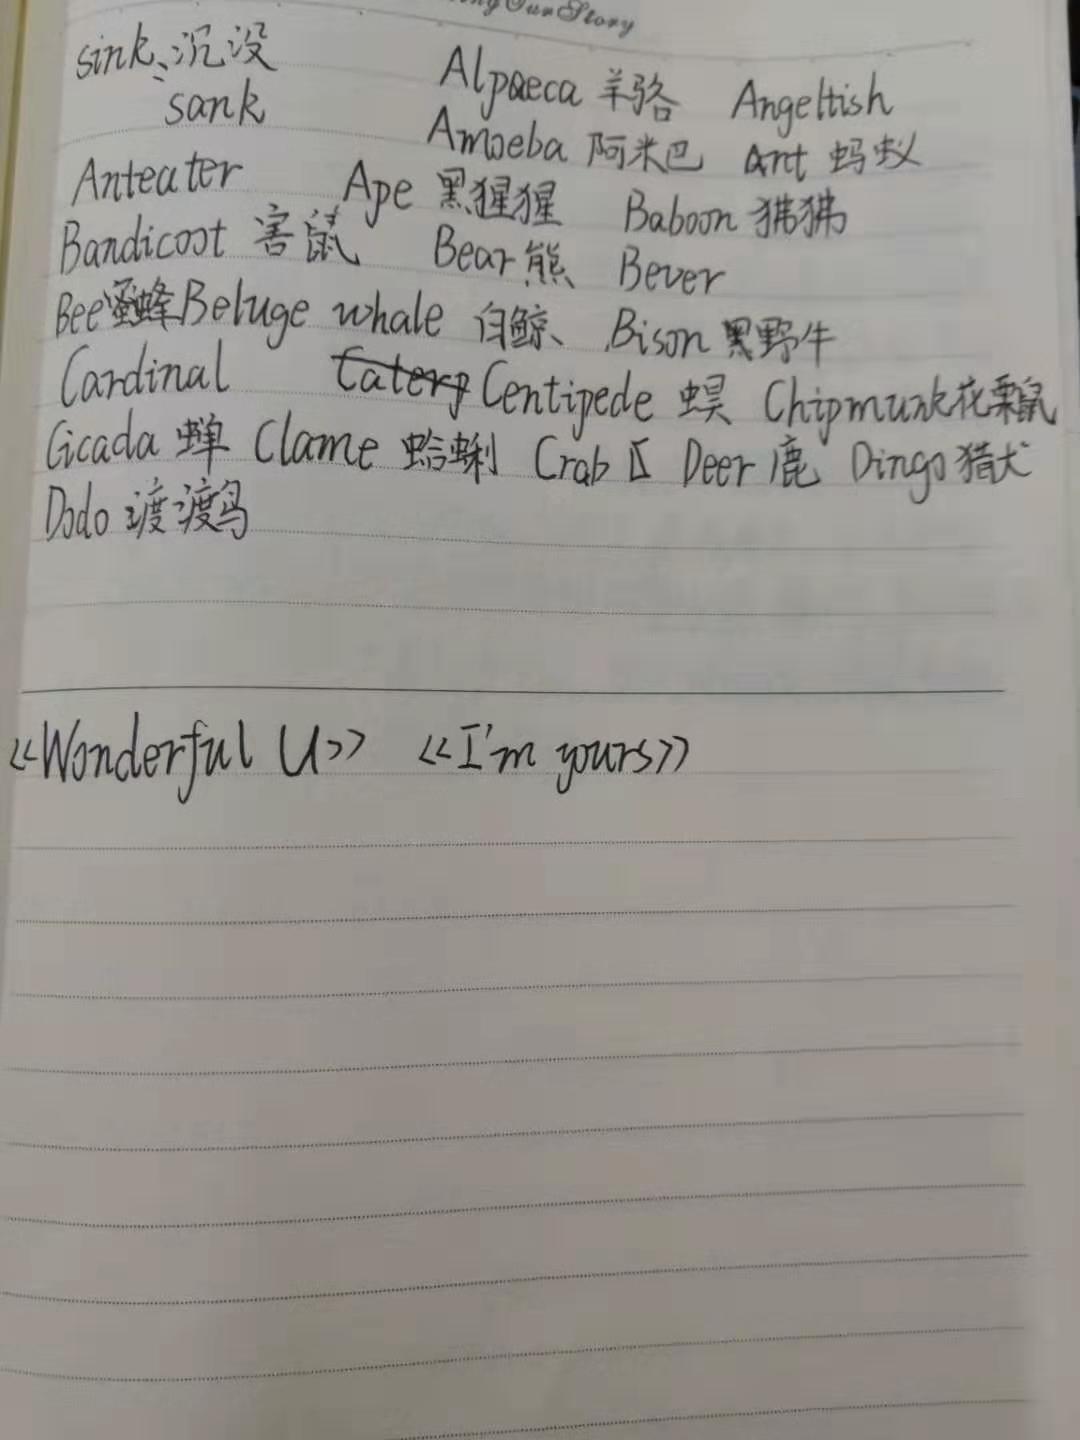 Our Story
sink、沉没 Alpaeca 羊骆 Angeltish
sank Amoeba 阿米巴 ant 蚂蚁
Anteater Ape 黑猩猩 Baboon 狒狒
Bandicoot 害鼠 Bear 熊 Bever
Bee 蜜蜂 Beluge whale 白鲸、 Bison 黑野牛
Cardinal Centipede 蜈 Chipmunk 花栗鼠
Cicada 蝉 Clame 蛤蜊 Crab Deer 鹿 Dingo 猎犬
Dodo 渡渡鸟
《Wonderful U》 《I'm yours》